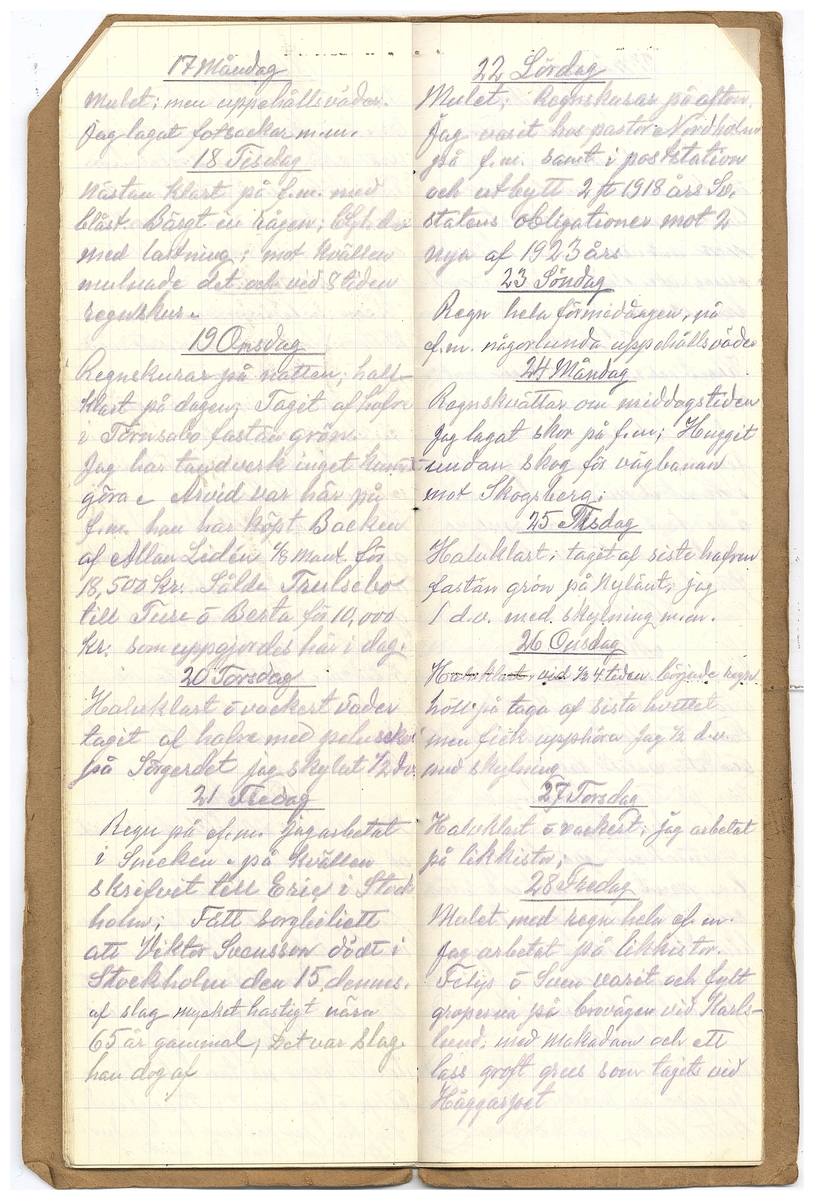 17 Måndag
Mulet; men uppehållsväder.
Jag lagat fotsackar m.m.
18 Tisdag
Nästan klart på f.m. med
blåst. Bärgt in Rågen;
med lastning; mot kvällen
mulnade det och vid 8 tiden
regnskur.
19 Onsdag
Regnskurar på natten; half-
klart på dagen; Taget af hafre
i Törnsabo fastän grön.
Jag har tandverk inget kunnat
göra. Arvid var här på
f.m. han har köpt Backen
af Allan Lidén 1/8 mant. för
18,500 kr. Sålde Trulsebo
till Ture o Berta för 10,000
kr. som uppgjordes här i dag.
20 Torsdag
Halvklart o vackert väder
tagit af hafre med
på Sörgerdet jag skylat 1/2 d.v.
21 Fredag
Regn på ef.m. jag arbetat
i Snecken. på kvällen
skrifvit till Eric i Stock
holm; Fått sorgbiljett
att Viktor Svensson dödt i
Stockholm den 15 dennes.
af slag mycket hastigt nära
65 år gammal; Det var slag
han dog af
22 Lördag
Mulet; Regnskurar på afton.
Jag varit hos pastor Nordholm
på f.m. samt i poststation
och utbytt 2 st 1918 års Sv.
statens obligationer mot 2
nya af 1923 års
23 Söndag
Regn hela förmiddagen, på
ef.m. någorlunda uppehållsväder
24 Måndag
Regnskvättar om middagstiden
jag lagat skor på f.m; Huggit
undan skog för vägbanan
mot Skogsberg;
25 Tisdag
Halvklart; taget af siste hafren
fastän grön på Nylänt, jag
1 d.v. med skylning m.m.
26 Onsdag
Halvklart, vid 1/2 4 tiden började regn
höll på taga af sista hvetet
men fick upphöra Jag 1/2 d.v.
med skylning
27 Torsdag
Halvklart o vackert; jag arbetat
på likkistor;
28 Fredag
Mulet med regn hela ef.m.
Jag arbetat på likkistor.
o Sven varit och fyllt
groperna på brovägen vid Karls-
lund. med makadam och ett
lass groft grus som tagits vid